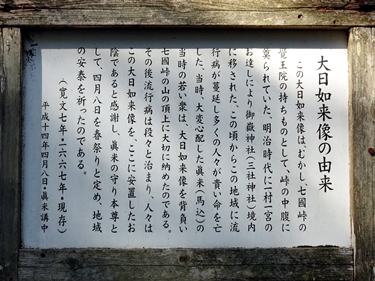 大日如来像の由来
この大日如来像は、むかし、七國峠の
覚王院の持ちものとして、峠の中腹に
奠られていた。明治時代に一村一宮の
お達しにより御嶽神社（三社神社）境内
に移された。この頃からこの地域に流
行病が蔓延し多くの人々が貴い命を亡
した。当時、大変心配した眞米（馬込）の
当時の若い衆は、大日如来像を背負い
七國峠の山の頂上に大切に納めたのである。
その後流行病は段々と治まり、人々は
この大日如来像を、ここに安置したお
陰であると感謝し、眞米の守り本尊と
して、四月八日を春祭りと定め、地域
の安泰を祈ったのである。
（寛文七年・一六六七年・現存）
平成十四年四月八日・眞米講中